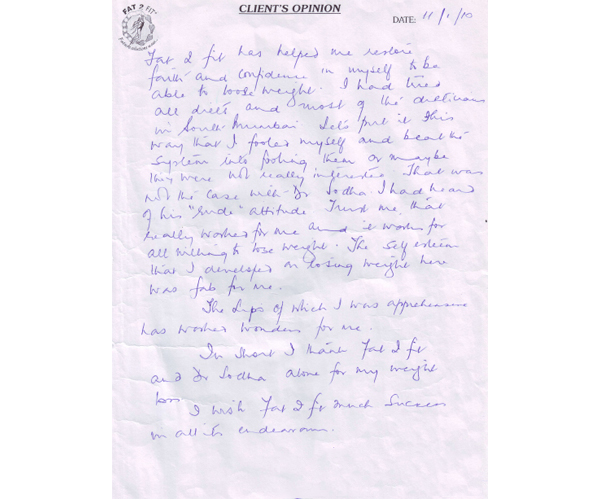 FAT 2 FIT
CLIENT'S OPINION
DATE: 11/1/10
Fat 2 fit has helped me restore
faith and confidence in myself to be
able to loose weight. I had tried
all diets and most of the dieticians
in South Mumbai Let's put it this
way that I fooled myself and beat the
system into fooling them or maybe
they were not really interested. That was
not the case with Dr Sodha. I had heard
of his "rude" attitude Trust me, that
really worked for me and it works for
all willing to lose weight. The self esteem
that I developed on losing weight here
was fab for me.
The Lipo of which I was apprehensive
has worked wonders for me.
In short I thank Fat 2 fit
and Dr Sodha alone for my weight
loss
I wish Fat 2 fit much success
in all its endeavours.